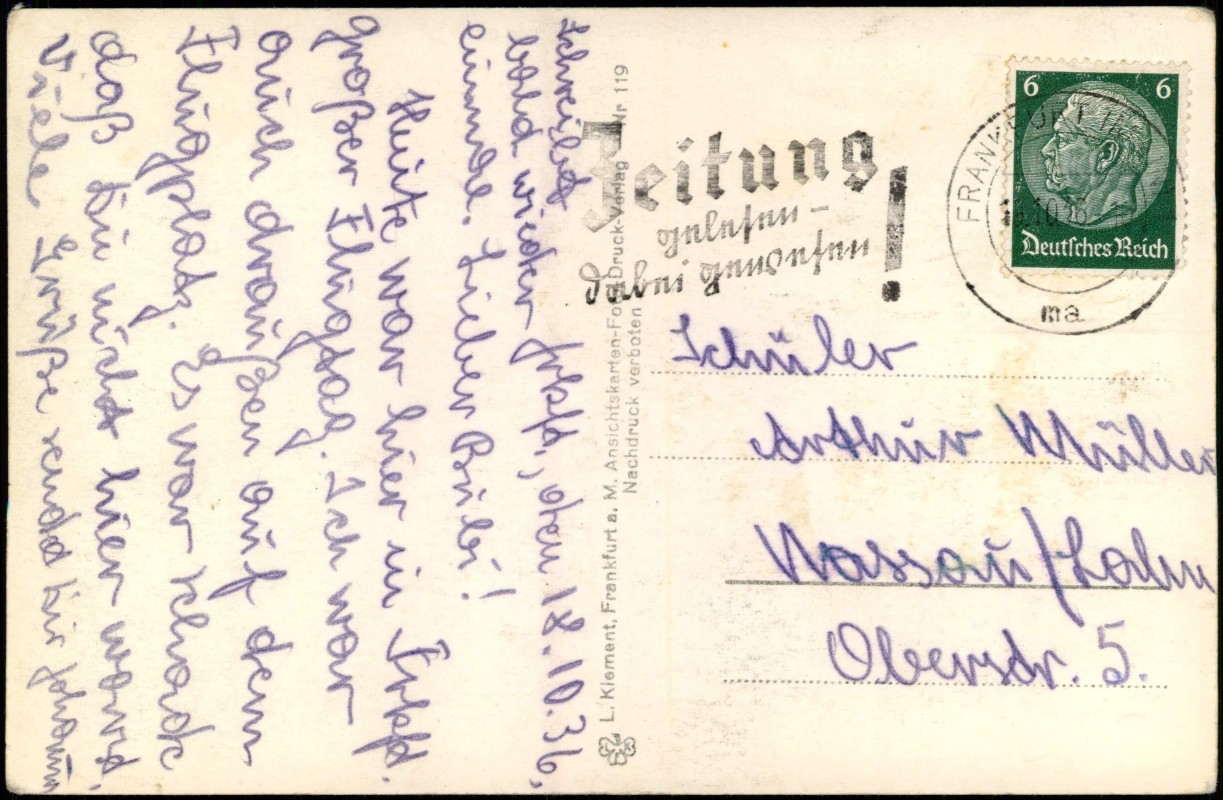 Schreibt
bald wieder Frkft., den 18.10.36.
einmal. Lieber Bubi!
Heute war hier in Frkft.
großer Flugtag. Ich war
auch draußen auf dem
Flugplatz. Es war schade
daß Du nicht hier warst.
Viele Grüße sendet Dir Johann
L. Klement, Frankfurt a. M. Ansichtskarten-Fotodruck-Verlag Nr 119
Nachdruck verboten
Zeitung
gelesen –
dabei gewesen!
FRANKFURT
ma
6 6
Deutsches Reich
Schüler
Arthur Müller
Nassau/Lahn
Oberstr. 5.